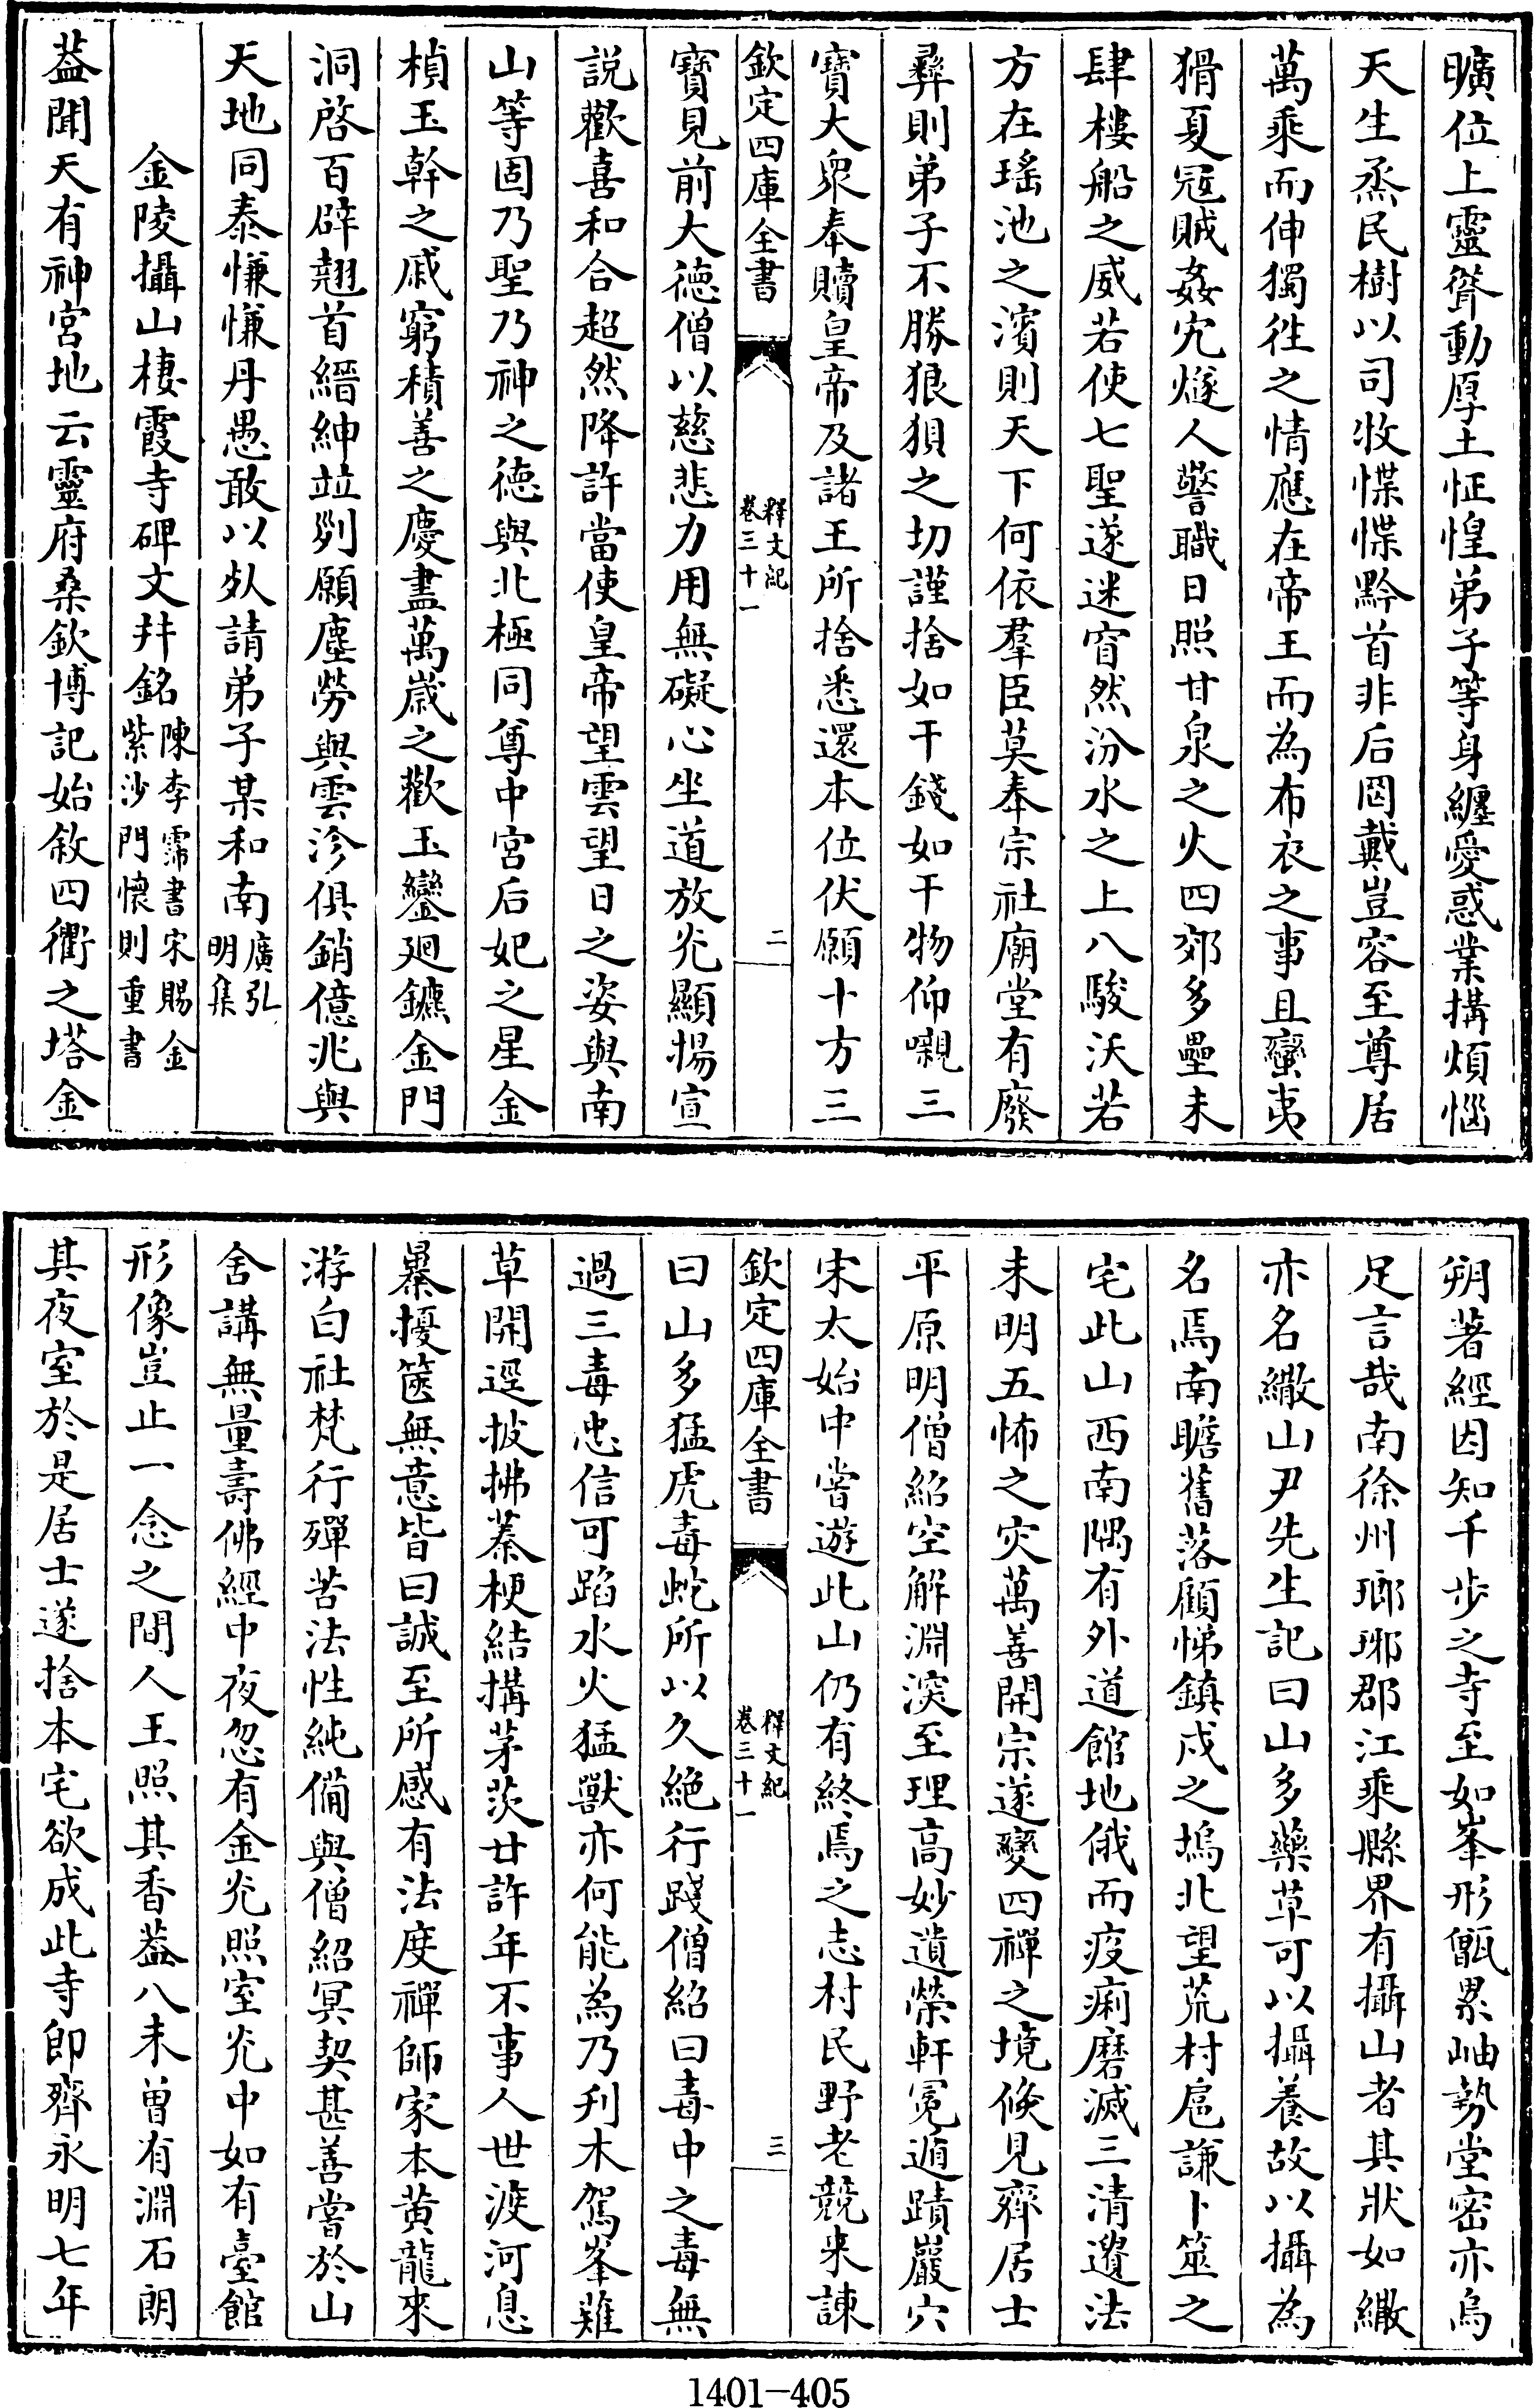 曠位上靈聳動厚土怔惶弟子等身纏愛惑業搆煩惱
天生烝民樹以司牧惵惵黔首非后罔戴豈容至尊居
萬乘而伸獨徃之情應在帝王而為布衣之事且蠻夷
猾夏冦賊姦宄燧人警職日照甘泉之火四郊多壘未
肆樓船之威若使七聖遂迷窅然汾水之上八駿沃若
方在瑤池之濱則天下何依羣臣莫奉宗社廟堂有廢
彛則弟子不勝狼狽之切謹捨如干錢如干物仰嚫三
寶大衆奉贖皇帝及諸王所捨悉還本位伏願十方三
欽定四庫全書
釋文紀
卷三十一
二
寶見前大德僧以慈悲力用無礙心坐道放光顯揚宣
説歡喜和合超然降許當使皇帝望雲望日之姿與南
山等固乃聖乃神之德與北極同尊中宮后妃之星金
楨玉幹之戚窮積善之慶盡萬歲之歡玉鑾廻鑣金門
洞啓百辟翹首縉紳竝列願塵勞與雲沴俱銷億兆與
天地同泰慊慊丹愚敢以死請弟子某和南廣弘明集
金陵攝山棲霞寺碑文并銘陳李霈書宋賜金紫沙門懷則重書
葢聞天有神宮地云靈府桑欽博記始敘四衢之塔金
朔著經因知千步之寺至如峯形甑累岫勢堂密亦烏
足言哉南徐州瑯琊郡江乘縣界有攝山者其狀如繖
亦名繖山尹先生記曰山多藥草可以攝養故以攝為
名焉南瞻舊落顧悌鎮戍之塢北望荒村扈謙卜筮之
宅此山西南隅有外道館地俄而疫痢磨滅三清遺法
未明五怖之灾萬善開宗遂變四禪之境倐見齊居士
平原明僧紹空解淵深至理高妙遺榮軒冕遁蹟巖穴
宋太始中嘗遊此山仍有終焉之志村民野老競来諫
欽定四庫全書
釋文紀
卷三十一
三
曰山多猛虎毒蛇所以久絶行踐僧紹曰毒中之毒無
過三毒忠信可蹈水火猛獸亦何能為乃刋木駕峯薙
草開逕披拂蓁梗結搆茅茨廿許年不事人世渡河息
暴擾篋無意皆曰誠至所感有法度禪師家本黄龍來
游白社梵行殫苦法性純備與僧紹冥契甚善嘗於山
舍講無量壽佛經中夜忽有金光照室光中如有臺館
形像豈止一念之間人王照其香葢八未曽有淵石朗
其夜室於是居士遂捨本宅欲成此寺即齊永明七年
1401-405